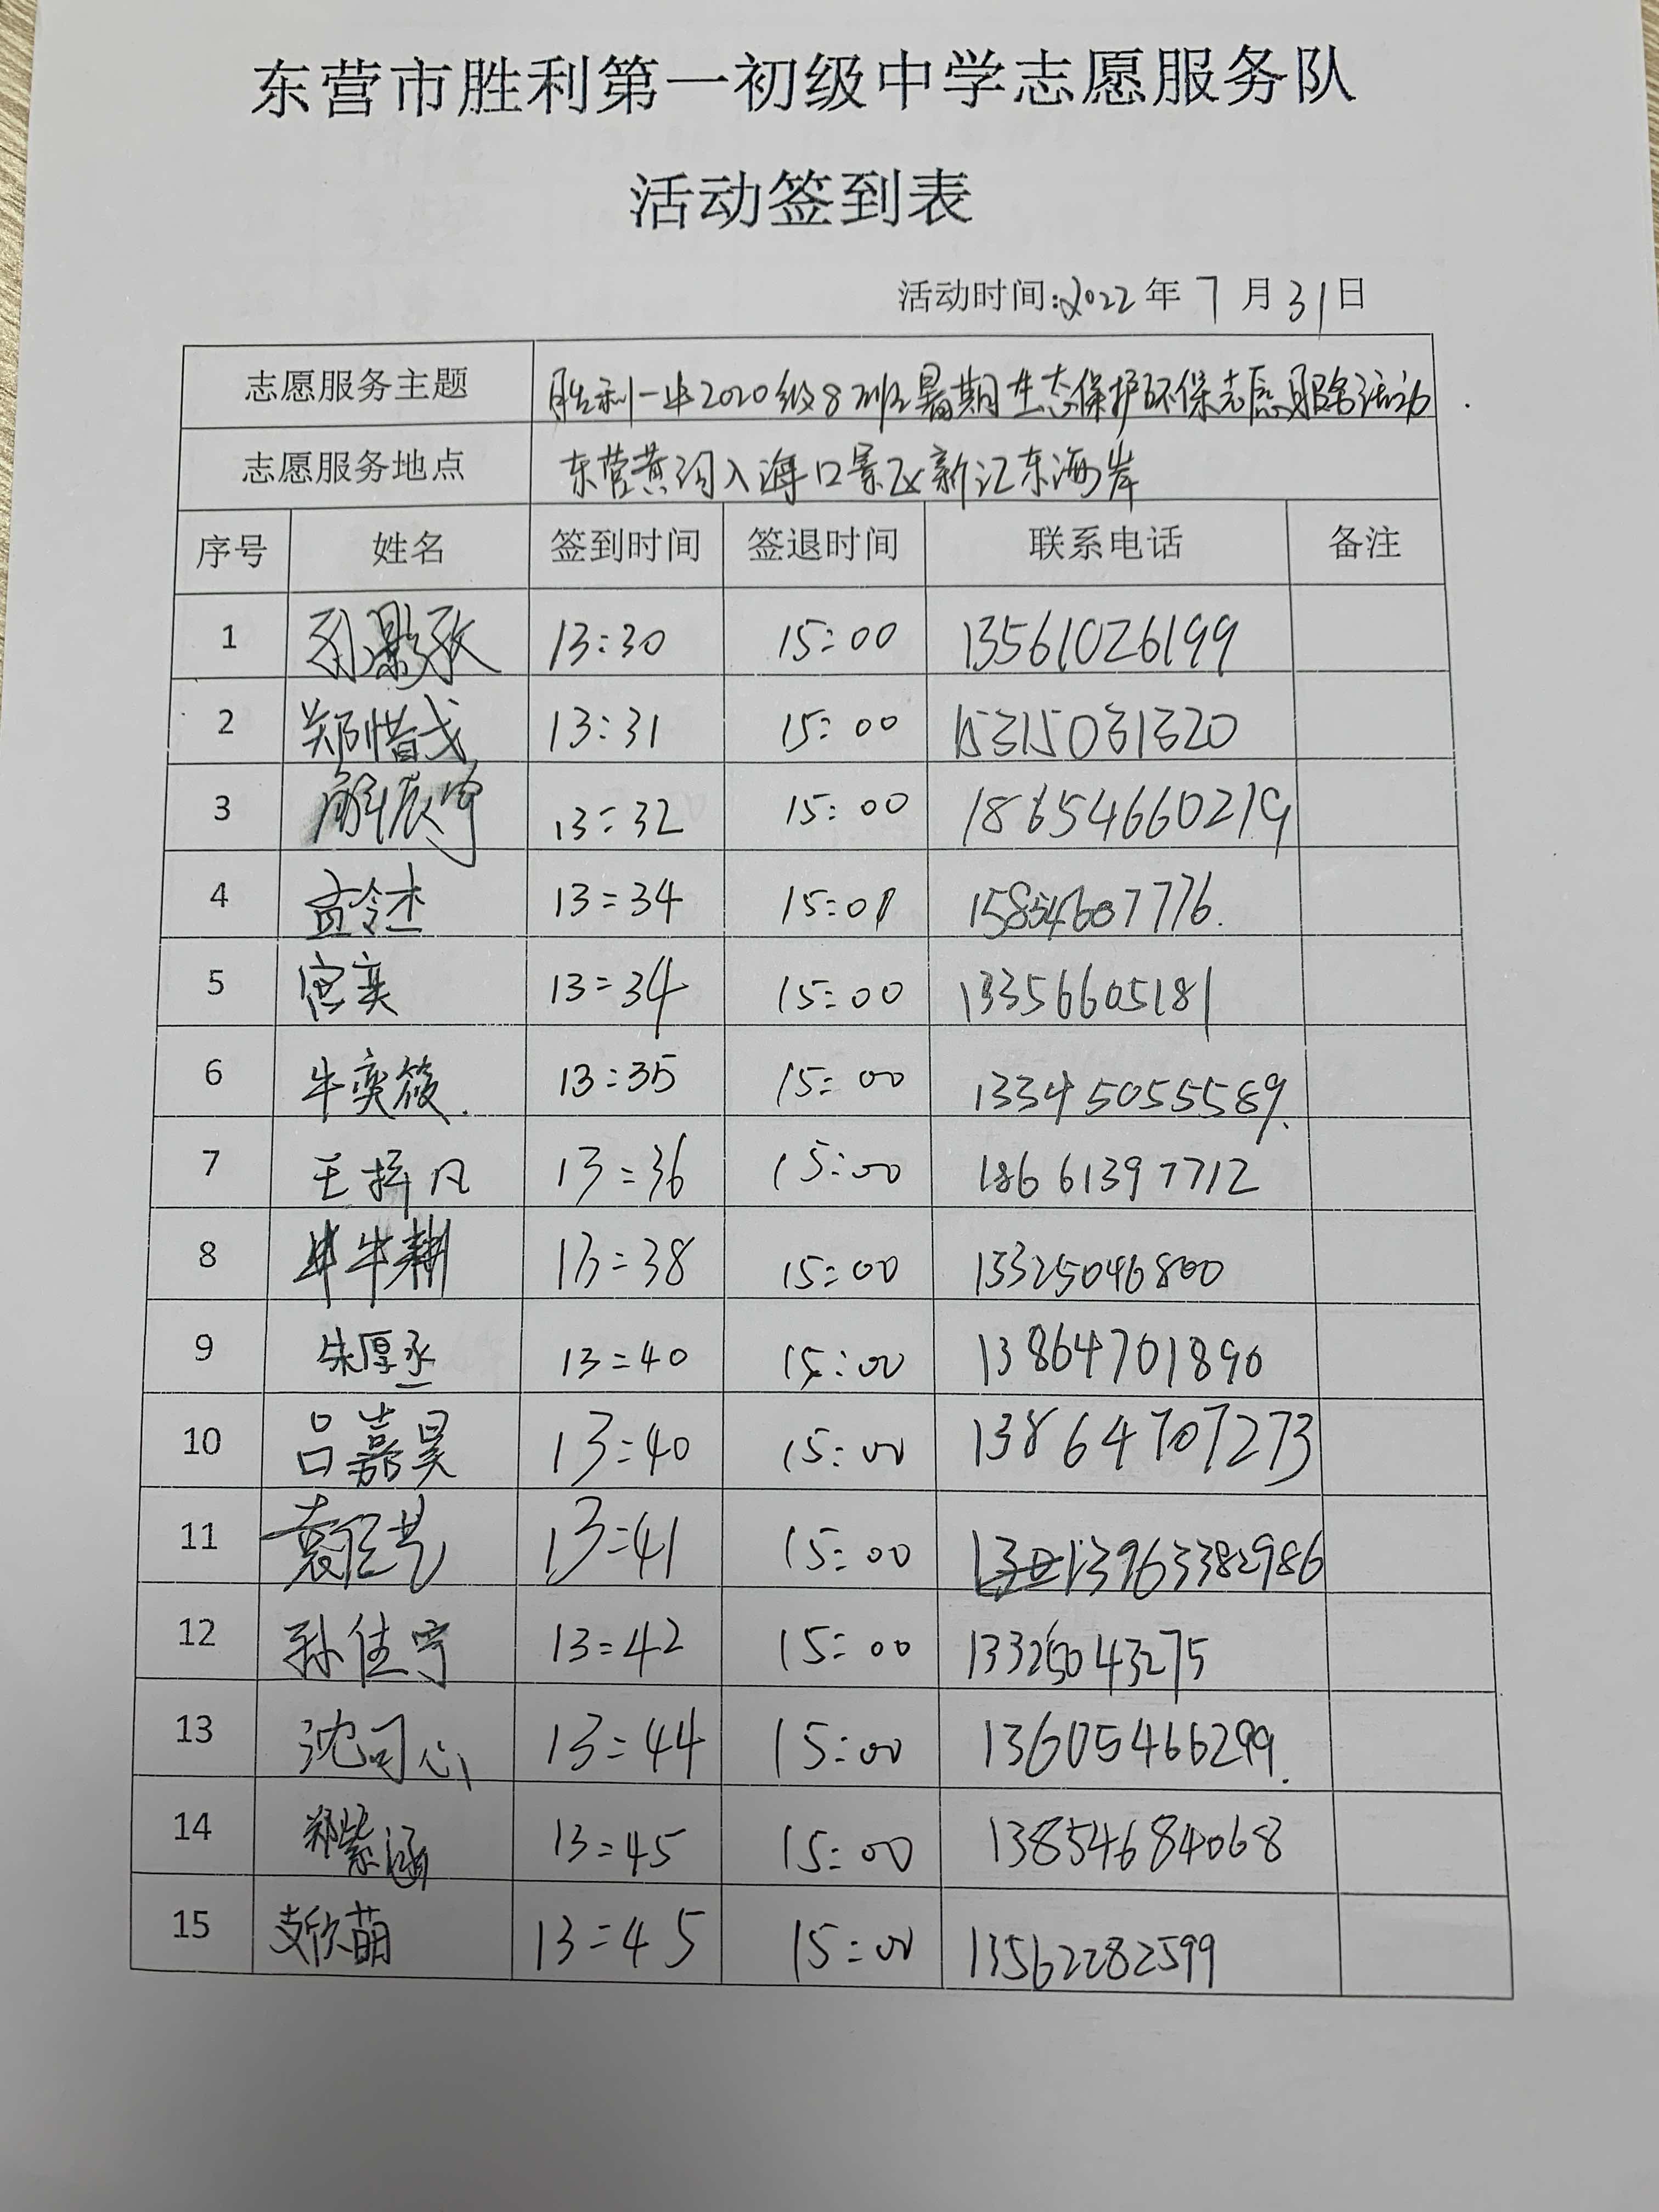 东营市胜利第一初级中学志愿服务队
活动签到表
活动时间:2022年7月31日
志愿服务主题 胜利一中2020级8班暑期生态保护环保志愿服务活动
志愿服务地点 东营黄河入海口景区新汇东海岸
序号 姓名 签到时间 签退时间 联系电话 备注
1 13:30 15:00 13561026199
2 郑惜戈 13:31 15:00 15315031320
3 解宸宇 13:32 15:00 18654660219
4 孟令杰 13:34 15:01 15854607776.
5 宫奕 13:34 15:00 13356605181
6 牛奕筱. 13:35 15:00 13345055589.
7 王择凡 13:36 15:00 18661397712
8 牛耕 13:38 15:00 13325046800
9 朱厚丞 13:40 15:00 13864701890
10 吕嘉昊 13:40 15:00 13864707273
11 袁任艺 13:41 15:00 13963382986
12 孙佳宁 13:42 15:00 13325043275
13 沈司心 13:44 15:00 13605466299.
14 郑紫涵 13:45 15:00 13854684068
15 支欣萌 13:45 15:00 13562282599